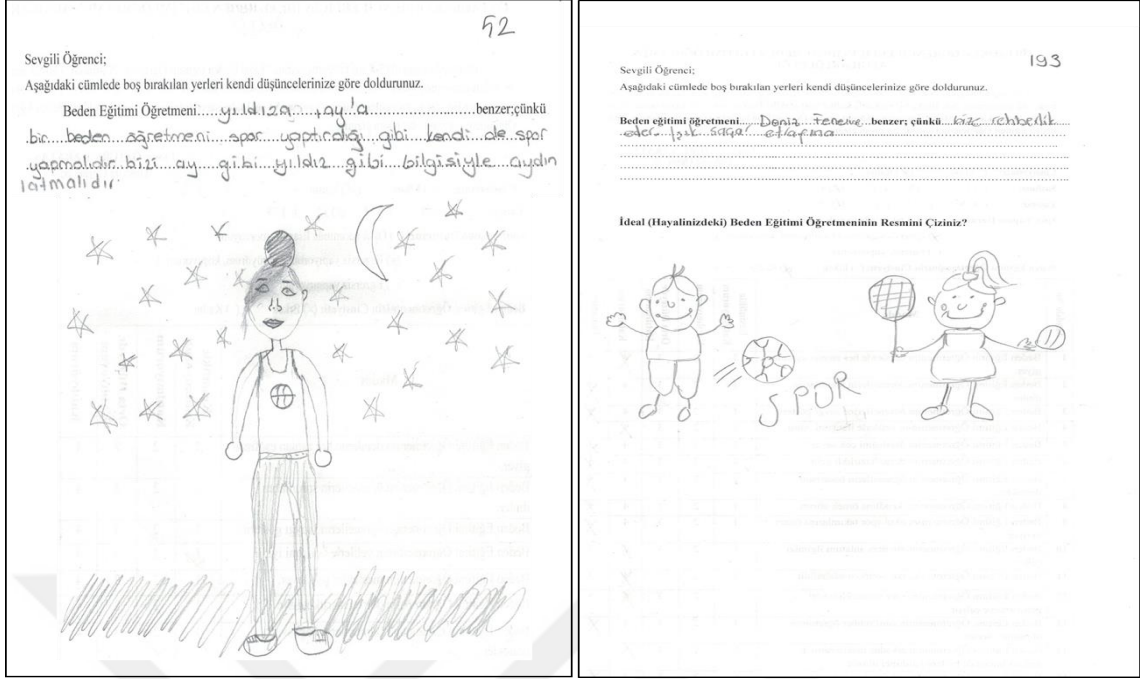 52
Sevgili Öğrenci;
Aşağıdaki cümlede boş bırakılan yerleri kendi düşüncelerinize göre doldurunuz.
Beden Eğitimi Öğretmeni......yıldıza....,ay'a..........benzer;çünkü
bir beden öğretmeni spor yaptırdığı gibi kendi de spor
yapmalıdır bizi ay gibi yıldız gibi bilgisiyle aydın
latmalıdır.
193
Sevgili Öğrenci;
Aşağıdaki cümlede boş bırakılan yerleri kendi düşüncelerinize göre doldurunuz.
Beden eğitimi öğretmeni.....Deniz Fenerine benzer; çünkü bize rehberlik
eder. Işık saçar etrafına
İdeal (Hayalinizdeki) Beden Eğitimi Öğretmeninin Resmini Çiziniz?
SPOR